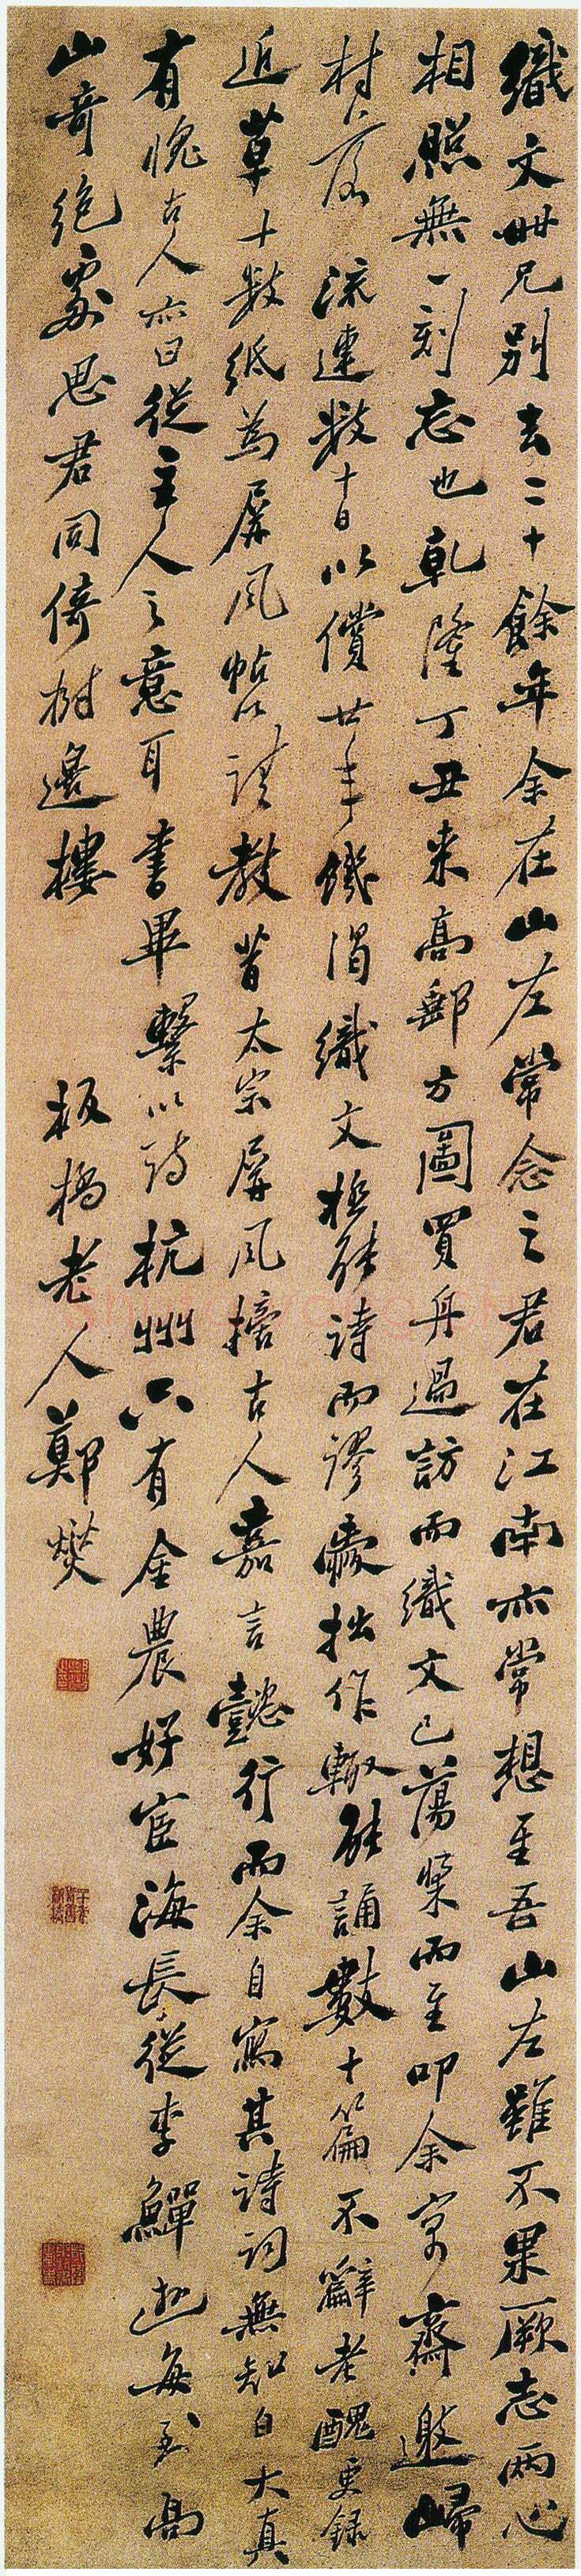 織文世兄別去二十餘年余在山左常念之君在江南亦常想至吾山左雖不果厥志兩心
相照無一刻忘也乾隆丁丑来高郵方圖買舟過訪而織文已蕩槳而至叩余寓齋邀歸
村落流連數十日以償廿年饑渴織文極能詩而謬愛拙作輒能誦數十篇不辭老醜更録
近草十數紙為屏風帖以請教昔太宗屏風搒古人嘉言懿行而余自寫其詩詞無知自大真
有愧古人亦曰從主人之意耳書畢繫以詩杭州只有金農好宦海長從李鱓遊每到高
山奇絶處思君同倚樹邊樓
板橋老人鄭燮